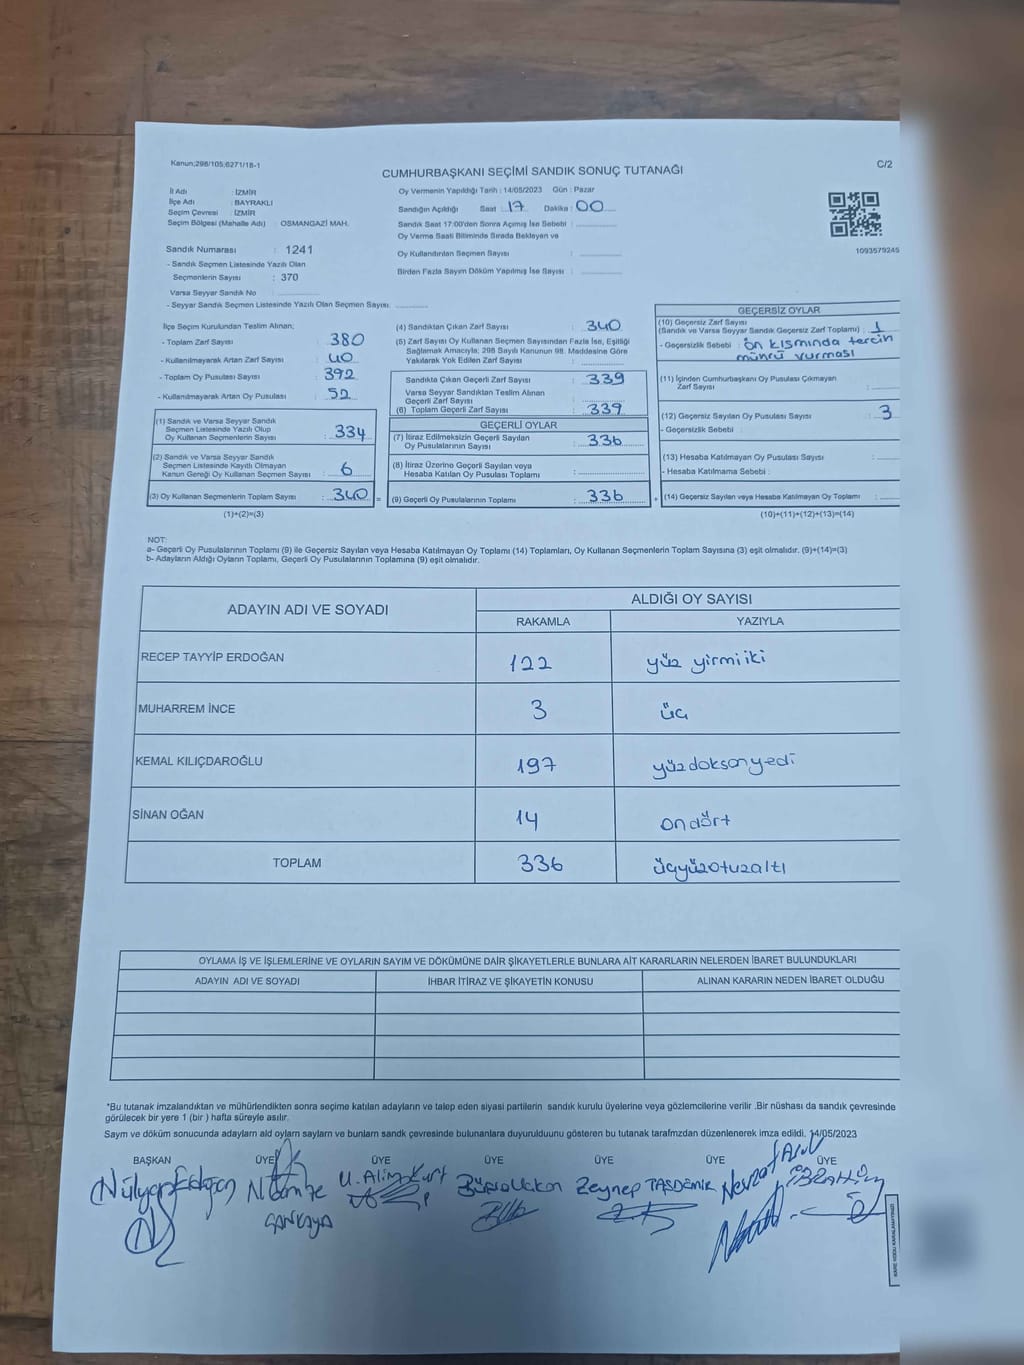 Kanun;298/105;6271/18-1
C/2
CUMHURBAŞKANI SEÇİMİ SANDIK SONUÇ TUTANAĞI
İl Adı : İZMİR
İlçe Adı : BAYRAKLI
Seçim Çevresi : İZMİR
Seçim Bölgesi (Mahalle Adı) : OSMANGAZİ MAH.
Sandık Numarası : 1241
- Sandık Seçmen Listesinde Yazılı Olan
Seçmenlerin Sayısı : 370
Varsa Seyyar Sandık No :
- Seyyar Sandık Seçmen Listesinde Yazılı Olan Seçmen Sayısı:
Oy Vermenin Yapıldığı Tarih : 14/05/2023 Gün : Pazar
Sandığın Açıldığı Saat : 17 Dakika : 00
Sandık Saat 17:00'den Sonra Açımış İse Sebebi :
Oy Verme Saati Bitiminde Sırada Bekleyen ve
Oy Kullandırılan Seçmen Sayısı :
Birden Fazla Sayım Döküm Yapılmış İse Sayısı :
1093579245
İlçe Seçim Kurulundan Teslim Alınan;
- Toplam Zarf Sayısı : 380
- Kullanılmayarak Artan Zarf Sayısı : 40
- Toplam Oy Pusulası Sayısı : 392
- Kullanılmayarak Artan Oy Pusulası : 52
(1) Sandık ve Varsa Seyyar Sandık
Seçmen Listesinde Yazılı Olup
Oy Kullanan Seçmenlerin Sayısı : 334
(2) Sandık ve Varsa Seyyar Sandık
Seçmen Listesinde Kayıtlı Olmayan
Kanun Gereği Oy Kullanan Seçmen Sayısı : 6
(3) Oy Kullanan Seçmenlerin Toplam Sayısı : 340 =
(1)+(2)=(3)
(4) Sandıktan Çıkan Zarf Sayısı : 340
(5) Zarf Sayısı Oy Kullanan Seçmen Sayısından Fazla İse, Eşitliği
Sağlamak Amacıyla; 298 Sayılı Kanunun 98. Maddesine Göre
Yakılarak Yok Edilen Zarf Sayısı :
Sandıkta Çıkan Geçerli Zarf Sayısı : 339
Varsa Seyyar Sandıktan Teslim Alınan
Geçerli Zarf Sayısı :
(6) Toplam Geçerli Zarf Sayısı : 339
GEÇERLİ OYLAR
(7) İtiraz Edilmeksizin Geçerli Sayılan
Oy Pusulalarının Sayısı : 336
(8) İtiraz Üzerine Geçerli Sayılan veya
Hesaba Katılan Oy Pusulası Toplamı :
(9) Geçerli Oy Pusulalarının Toplamı : 336 +
GEÇERSİZ OYLAR
(10) Geçersiz Zarf Sayısı
(Sandık ve Varsa Seyyar Sandık Geçersiz Zarf Toplamı) : 1
- Geçersizlik Sebebi : ön kısmında tercih
mührü vurması
(11) İçinden Cumhurbaşkanı Oy Pusulası Çıkmayan
Zarf Sayısı :
(12) Geçersiz Sayılan Oy Pusulası Sayısı : 3
- Geçersizlik Sebebi :
(13) Hesaba Katılmayan Oy Pusulası Sayısı :
- Hesaba Katılmama Sebebi :
(14) Geçersiz Sayılan veya Hesaba Katılmayan Oy Toplamı :
(10)+(11)+(12)+(13)=(14)
NOT:
a- Geçerli Oy Pusulalarının Toplamı (9) ile Geçersiz Sayılan veya Hesaba Katılmayan Oy Toplamı (14) Toplamları, Oy Kullanan Seçmenlerin Toplam Sayısına (3) eşit olmalıdır. (9)+(14)=(3)
b- Adayların Aldığı Oyların Toplamı, Geçerli Oy Pusulalarının Toplamına (9) eşit olmalıdır.
ADAYIN ADI VE SOYADI
ALDIĞI OY SAYISI
RAKAMLA YAZIYLA
RECEP TAYYİP ERDOĞAN 122 yüz yirmi iki
MUHARREM İNCE 3 üç
KEMAL KILIÇDAROĞLU 197 yüzdoksanyedi
SİNAN OĞAN 14 ondört
TOPLAM 336 üçyüzotuzaltı
OYLAMA İŞ VE İŞLEMLERİNE VE OYLARIN SAYIM VE DÖKÜMÜNE DAİR ŞİKAYETLERLE BUNLARA AİT KARARLARIN NELERDEN İBARET BULUNDUKLARI
ADAYIN ADI VE SOYADI İHBAR İTİRAZ VE ŞİKAYETİN KONUSU ALINAN KARARIN NEDEN İBARET OLDUĞU
*Bu tutanak imzalandıktan ve mühürlendikten sonra seçime katılan adayların ve talep eden siyasi partilerin sandık kurulu üyelerine veya gözlemcilerine verilir .Bir nüshası da sandık çevresinde
görülecek bir yere 1 (bir ) hafta süreyle asılır.
Sayım ve döküm sonucunda adayların ald oyların sayların ve bunların sandk çevresinde bulunanlara duyurulduunu gösteren bu tutanak tarafmzdan düzenlenerek imza edildi. 14/05/2023
BAŞKAN ÜYE ÜYE ÜYE ÜYE ÜYE ÜYE
Zeynep TAŞDEMİR Nevzat
İBRAHİM